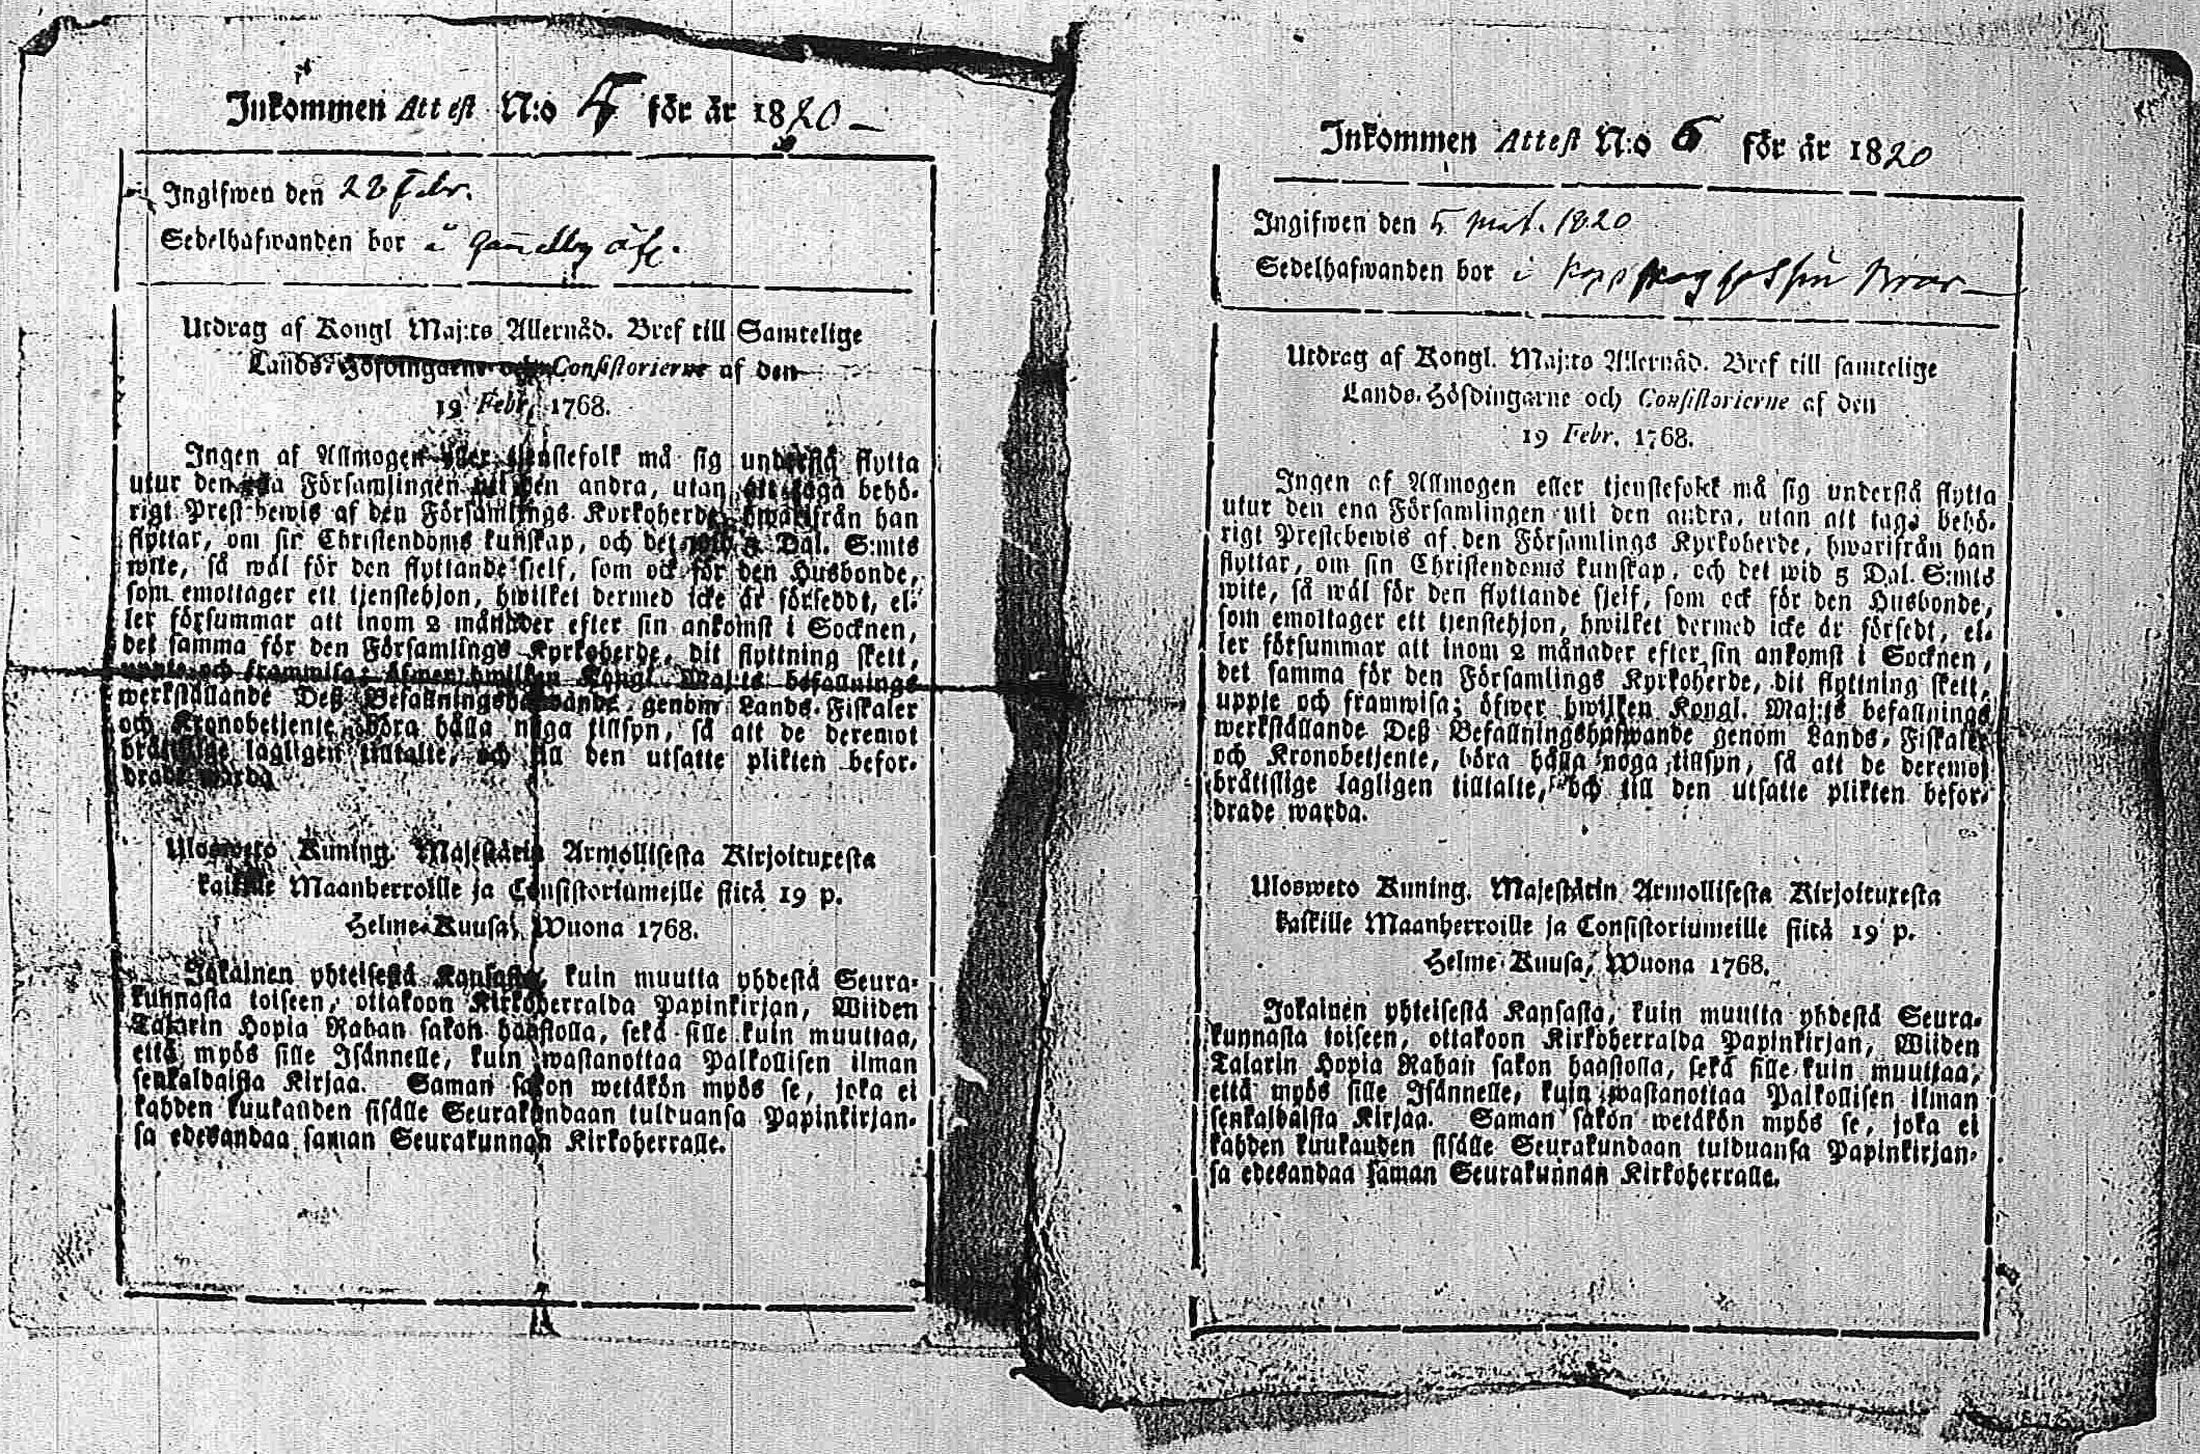 Inkommen Attest N:o 5 för år 1820
Ingifwen den 28 Febr.
Sedelhafwanden bor å
Utdrag af Kongl Maj:ts Allernåd. Bref till Samtelige
Lands-Höfdingarne och Consistorierne af den
19 Febr. 1768.
Ingen af Allmogen eller tjenstefolk må sig understå flytta
utur den ena Församlingen uti den andra, utan att taga behö-
rigt Prest-bewis af den Församlings Kyrkoherde, hwarifrån han
flyttar, om sin Christendoms kunskap, och det wid 5 Dal. S:mts
wite, så wäl för den flyttande sjelf, som ock för den Husbonde,
som emottager ett tjenstehjon, hwilket dermed icke är förseddt, el-
ler försummar att inom 2 månader efter sin ankomst i Socknen,
det samma för den Församlings Kyrkoherde, dit flyttning skett,
uppte och framwisa; öfwer hwilken Kongl. Maj:ts befallnings
werkställande Deß Befallningshafwande genom Lands-Fiskaler
och Kronobetjente böra hålla noga tillsyn, så att de deremot
bråttslige lagligen tilltalte, och till den utsatte plikten befor-
drade warda
Ulosweto Kuning. Majestätin Armollisesta Kirjoituxesta
kaikille Maanherroille ja Consistoriumeille siitä 19 p.
Helme-Kuusa, Wuona 1768.
Jokainen yhteisestä Kansasta, kuin muutta yhdestä Seura-
kunnasta toiseen, ottakoon Kirkoherralda Papinkirjan, Wiiden
Talarin Hopia Rahan sakon haastolla, sekä sille kuin muuttaa,
että myös sille Isännelle, kuin wastanottaa Palkollisen ilman
senkaldaista Kirjaa. Saman sakon wetäkön myös se, joka ei
kahden kuukauden sisälle Seurakundaan tulduansa Papinkirjan-
sa edesandaa saman Seurakunnan Kirkoherralle.
Inkommen Attest N:o 6 för år 1820
Ingifwen den 5 1820
Sedelhafwanden bor i
Utdrag af Kongl. Maj:ts Allernåd. Bref till samtelige
Lands-Höfdingarne och Consistorierne af den
19 Febr. 1768.
Ingen af Allmogen eller tjenstefolck må sig understå flytta
utur den ena Församlingen uti den andra, utan att taga behö-
rigt Prestebewis af den Församlings Kyrkoherde, hwarifrån han
flyttar, om sin Christendoms kunskap, och det wid 5 Dal. S:mts
wite, så wäl för den flyttande sjelf, som ock för den Husbonde,
som emottager ett tjenstehjon, hwilket dermed icke är försedt, el-
ler försummar att inom 2 månader efter sin ankomst i Socknen,
det samma för den Församlings Kyrkoherde, dit flyttning skett,
uppte och framwisa; öfwer hwilken Kongl. Maj:ts befallnings
werkställande Deß Befallningshafwande genom Lands-Fiskaler
och Kronobetjente, böra hålla noga tillsyn, så att de deremot
bråttslige lagligen tilltalte, och till den utsatte plikten befor-
drade warda.
Ulosweto Kuning. Majestätin Armollisesta Kirjoituxesta
kaikille Maanherroille ja Consistoriumeille siitä 19 p.
Helme-Kuusa, Wuona 1768.
Jokainen yhteisestä Kansasta, kuin muutta yhdestä Seura-
kunnasta toiseen, ottakoon Kirkoherralda Papinkirjan, Wiiden
Talarin Hopia Rahan sakon haastolla, sekä sille kuin muuttaa,
että myös sille Isännelle, kuin wastanottaa Palkollisen ilman
senkaldaista Kirjaa. Saman sakon wetäkön myös se, joka ei
kahden kuukauden sisälle Seurakundaan tulduansa Papinkirjan-
sa edesandaa saman Seurakunnan Kirkoherralle.